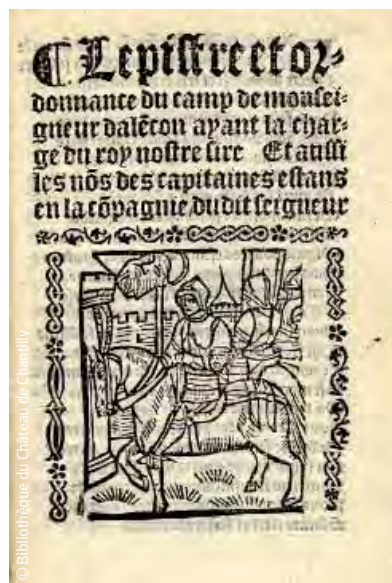 ¶ Lepistre et or-
donnance du camp de monsei-
gneur dalẽcon ayant la char-
ge du roy nostre sire Et aussi
les nõs des capitaines estans
en la cõpagnie dudit seigneur
© Bibliothèque du Château de Chantilly